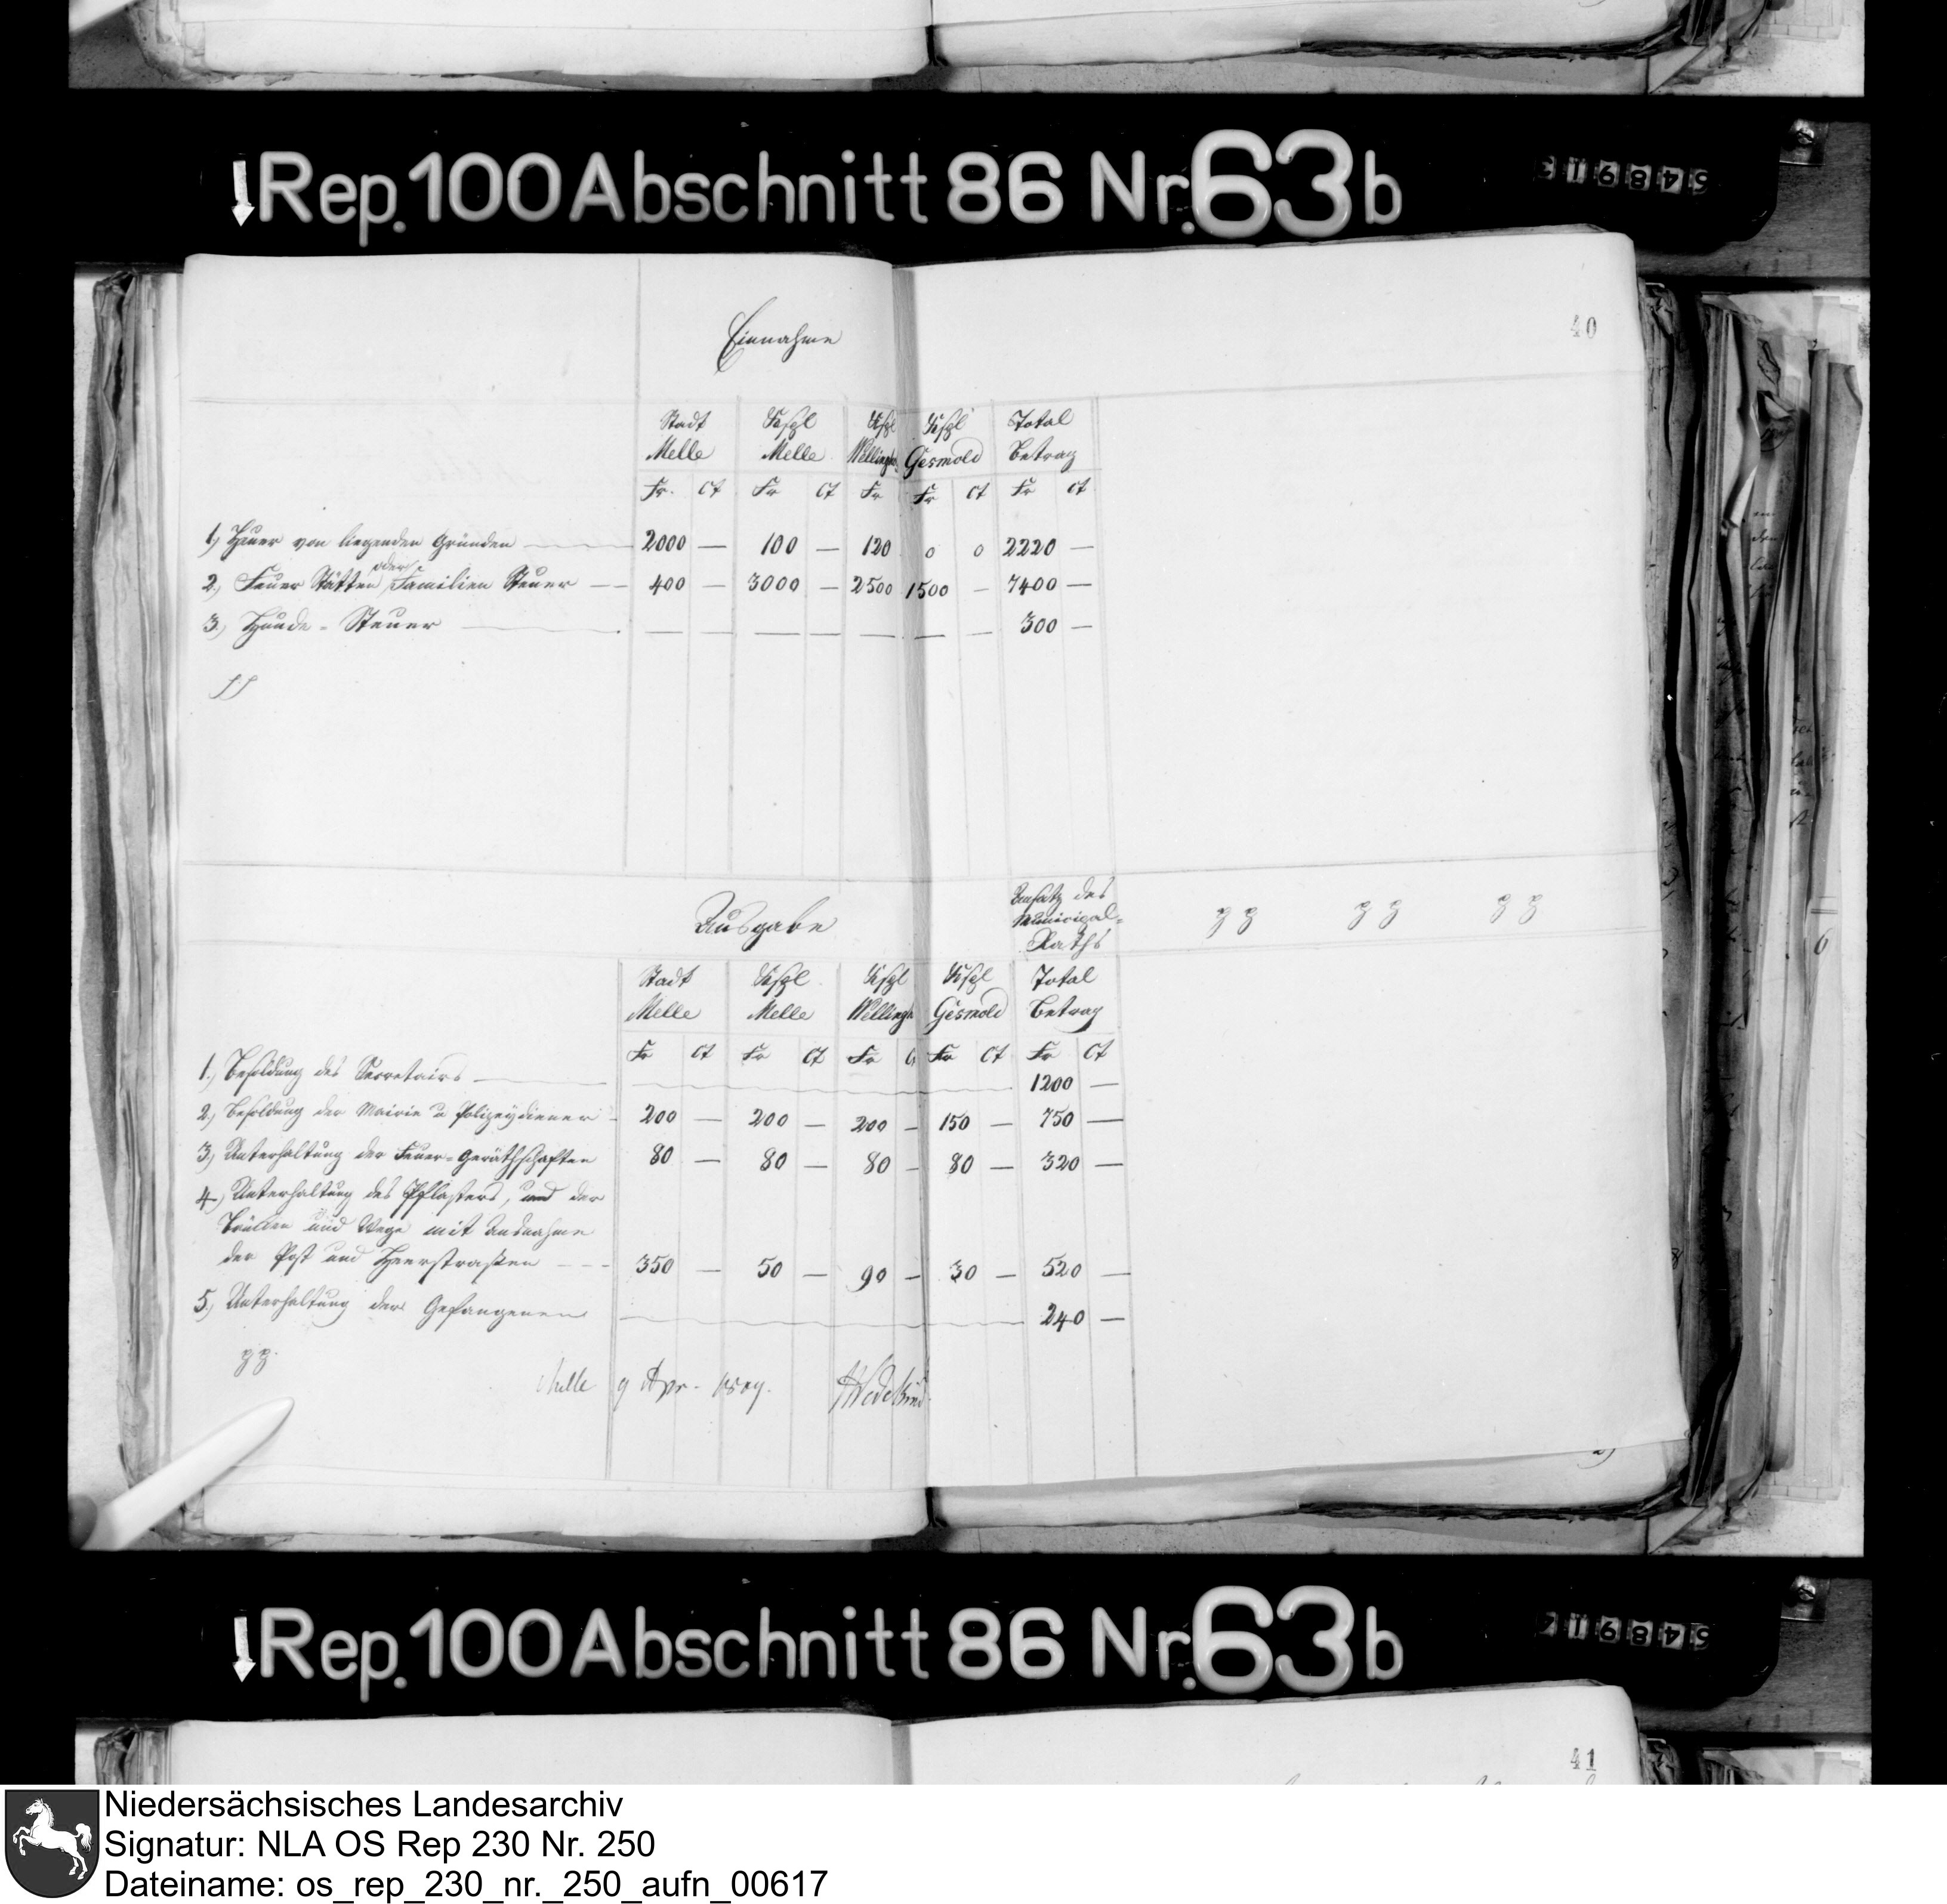 Rep. 100 Abschnitt 86 Nr. 63b
548913
40
Einnahme
Stadt Kspl Kspl Kspl Total
Melle Melle Wellingh. Gesmold Betrag
Fr. Ct Fr Ct Fr Fr Ct Fr Ct
1.) Heuer von liegenden Gründen 2000 — 100 — 120 0 0 2220 —
oder
2.) Feuer Stätten Familien Steuer 400 — 3000 — 2500 1500 — 7400 —
3.) Hunde-Steuer — — — — — — — 300 —
Ausgabe
Ansatz des
Municipal-
Raths
Stadt Kspl Kspl Kspl Total
Melle Melle Wellingh Gesmold Betrag
Fr Ct Fr Ct Fr C Fr Ct Fr Ct
1.) Besoldung des Secretairs 1200 —
2.) Besoldung der Mairie u Polizeydiener 200 — 200 — 200 — 150 — 750 —
3.) Unterhaltung der Feuer-Geräthschaften 80 — 80 — 80 — 80 — 320 —
4.) Unterhaltung des Pflasters, und der
Brücken und Wege mit Ausnahme
der Post und Heerstraßen 350 — 50 — 90 — 30 — 520 —
5.) Unterhaltung der Gefangenen 240 —
Melle 9 Apr. 1809. Wedekind
Rep. 100 Abschnitt 86 Nr. 63b
41
Niedersächsisches Landesarchiv
Signatur: NLA OS Rep 230 Nr. 250
Dateiname: os_rep_230_nr._250_aufn_00617